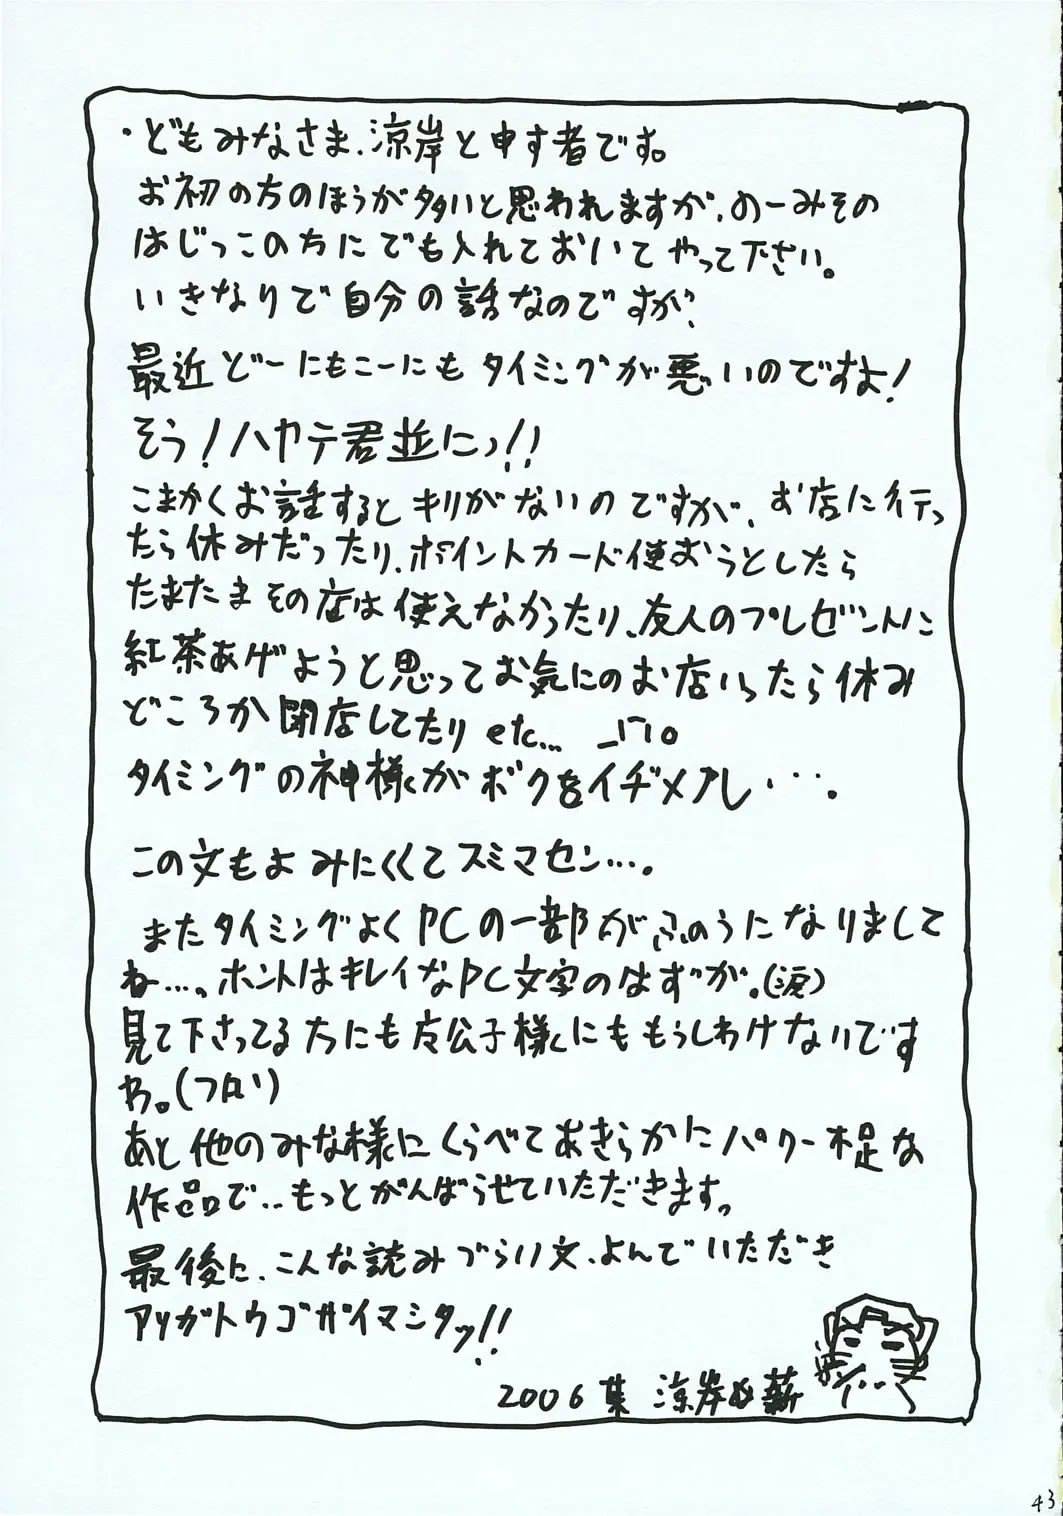 ・どもみなさま、涼岸と申す者です。
お初の方のほうが多いと思われますが、のーみその
はじっこの方にでも入れておいてやって下さい。
いきなりで自分の話なのですが、
最近どーにもこーにもタイミングが悪いのですよ!
そう!ハヤテ君並にっ!!
こまかくお話するとキリがないのですが、お店に行っ
たら休みだったり、ポイントカード使おうとしたら
たまたまその店は使えなかったり、友人のプレゼントに
紅茶あげようと思ってお気にのお店いったら休み
どころか閉店してたり etc… _| ̄|○
タイミングの神様がボクをイヂメルし・・・。
この文もよみにくくてスミマセン…。
またタイミングよくPCの一部がふのうになりまして
ね…。ホントはキレイなPC文字のはずが。(涙)
見て下さってる方にも友公子様にももうしわけないです
わ。
あと他のみな様にくらべてあきらかにパワー不足な
作品で‥もっとがんばらせていただきます。
最後に、こんな読みづらい文、よんでいただき
アリガトウゴザイマシタッ!!
2006 涼岸 薪
43